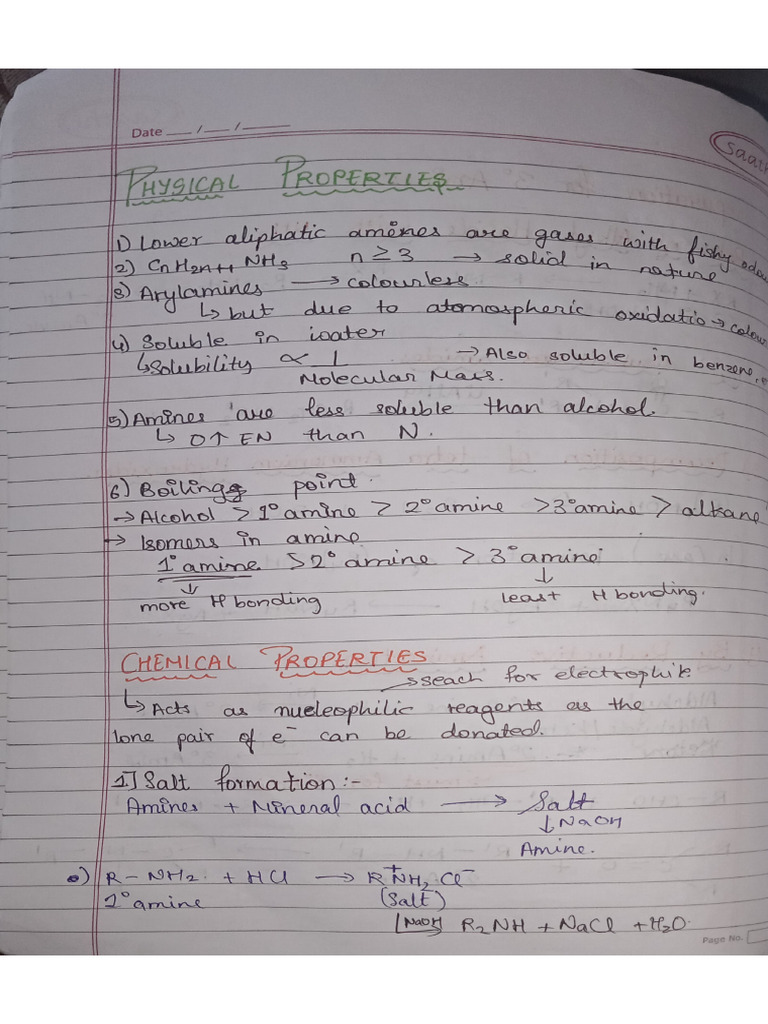 Date __/__/__
Saath
PHYSICAL PROPERTIES
1) Lower aliphatic amines are gases with fishy odou
2) CnH2n+1 NH3 n ≥ 3 → solid in nature
3) Arylamines → colourless
↳ but due to atomospheric oxidatio → colou
4) Soluble in water
↳ Solubility ∝ 1 / Molecular Mass. → Also soluble in benzene,
5) Amines are less soluble than alcohol.
↳ O↑ EN than N.
6) Boiling point.
→ Alcohol > 1° amine > 2° amine > 3° amine > alkane
→ Isomers in amine
1° amine > 2° amine > 3° amine
↓ ↓
more H bonding least H bonding.
CHEMICAL PROPERTIES
→ seach for electrophile
↳ Acts as nucleophilic reagents as the
lone pair of e⁻ can be donated.
1] Salt formation :-
Amines + Mineral acid → Salt
↓ NaOH
Amine.
R-NH2 + HCl → R N⁺H2 Cl⁻
1° amine (Salt)
NaOH → R2NH + NaCl + H2O.
Page No.